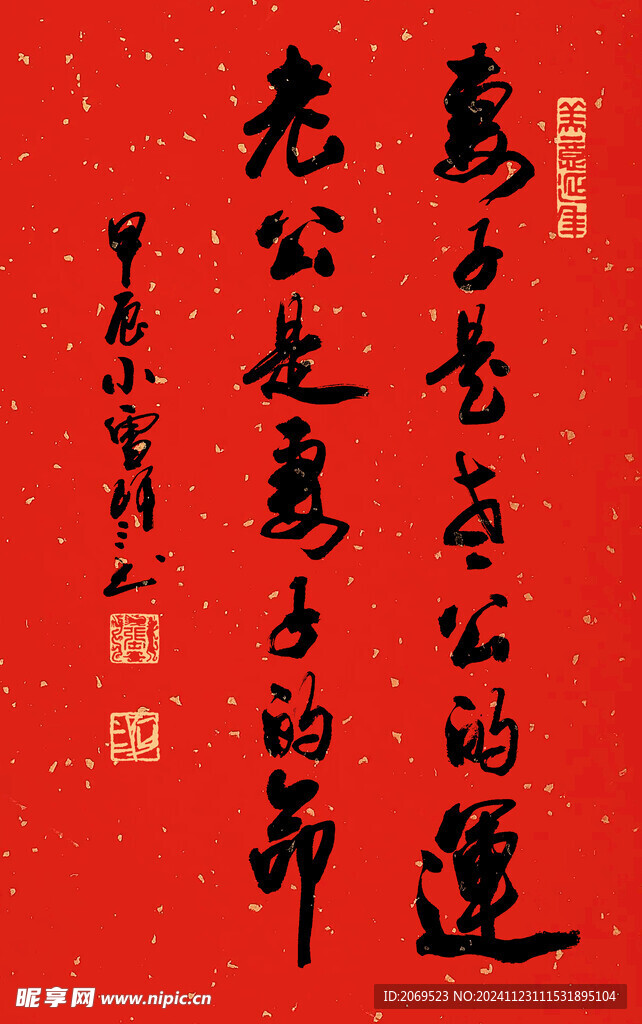 妻子是老公的運
老公是妻子的命
甲辰小雪
昵享网 www.nipic.cn
ID:2069523 NO:20241123111531895104